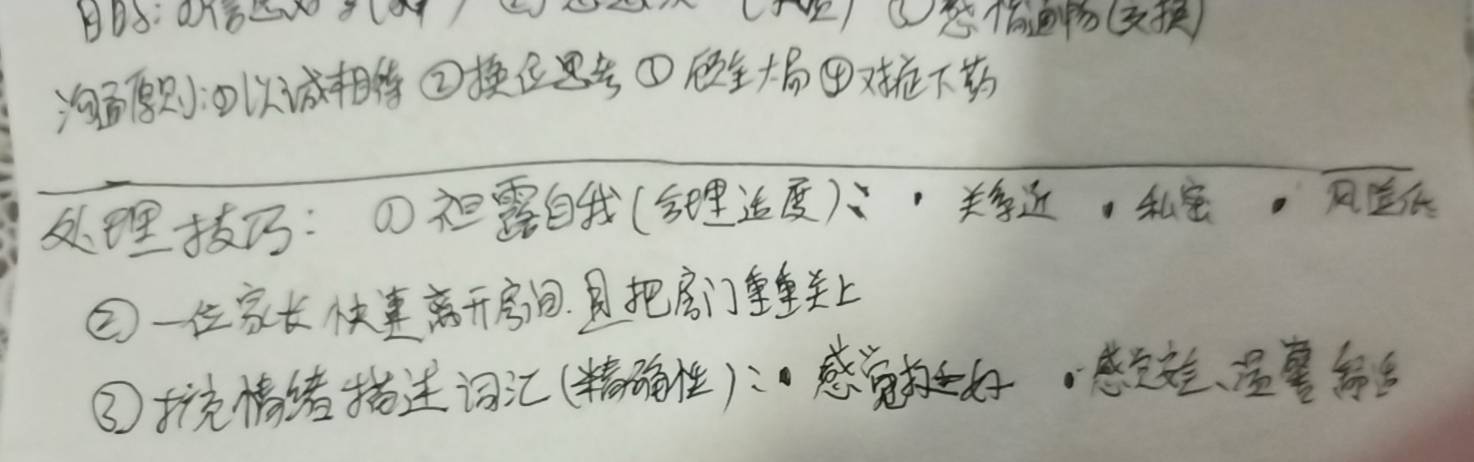 目的:①信息 ② ③感情通畅(交换)
沟通原则:①以诚相待 ②换位思考 ① 顾全大局 ④对症下药
处理技巧: ① 袒露自我(合理适度): · 关系近 · 私密 · 风险低
② 一位家长快速离开房间.且把房门重重关上
③ 扩充情绪描述词汇(精确性):· 感觉挺好 ·感觉安全、温馨